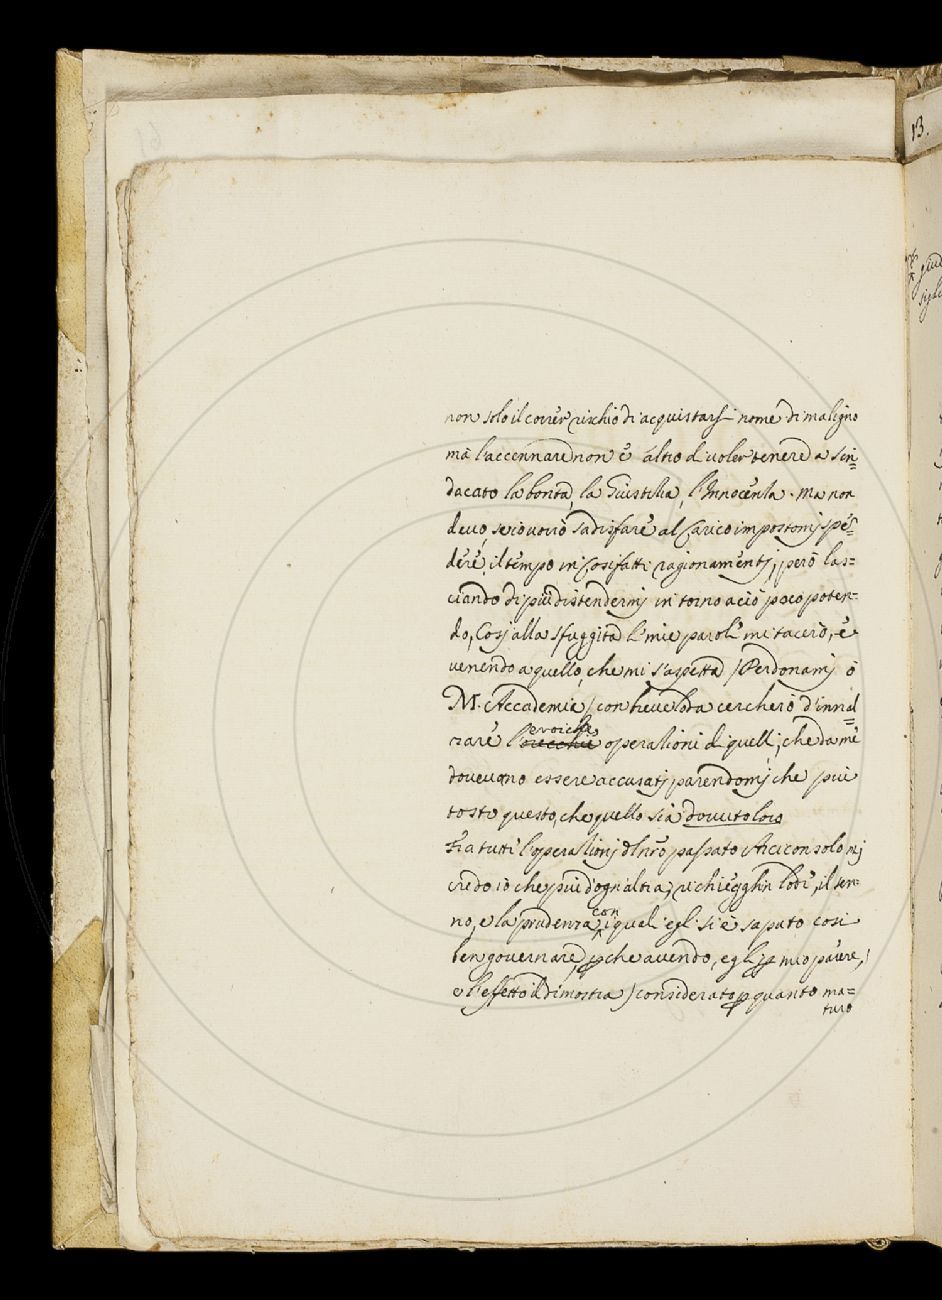 13.
non solo il correr rischio di acquistarsi nome di maligno
mà l'accennare non è altro ch'voler tenere a sin=
dacato la bontà, la Giustitia, l'Innocenza. Ma non
devo, se io vorrò sadisfare al Carico impostomj spē=
dere il tempo in Cosifatti ragionamentj, però las=
ciando di più distendermj intorno a ciò poco poten=
do, Cosj alla sfuggita le mie parole mi tacerò, è
venendo a quello, che mi s'aspetta (Perdonamj ò
M. Accademie) con breve loda cercherò d'innal=
zare l'eroiche orecchie operationi di quellj, che da mè
dovevano essere accusatj parendomj che più
tosto questo, che quello sia dovuto loro
Fra tutti l'operationj del nrō passato Arciconsolo mj
credo io che più d'ogn'altra, richiegghin lode, il sen=
no, e la prudenza, con i quali egli si è saputo cosi
ben governare, p che avendo, egli p mio parere,
e l'effetto il dimostra) considerato p quanto ma=
turo